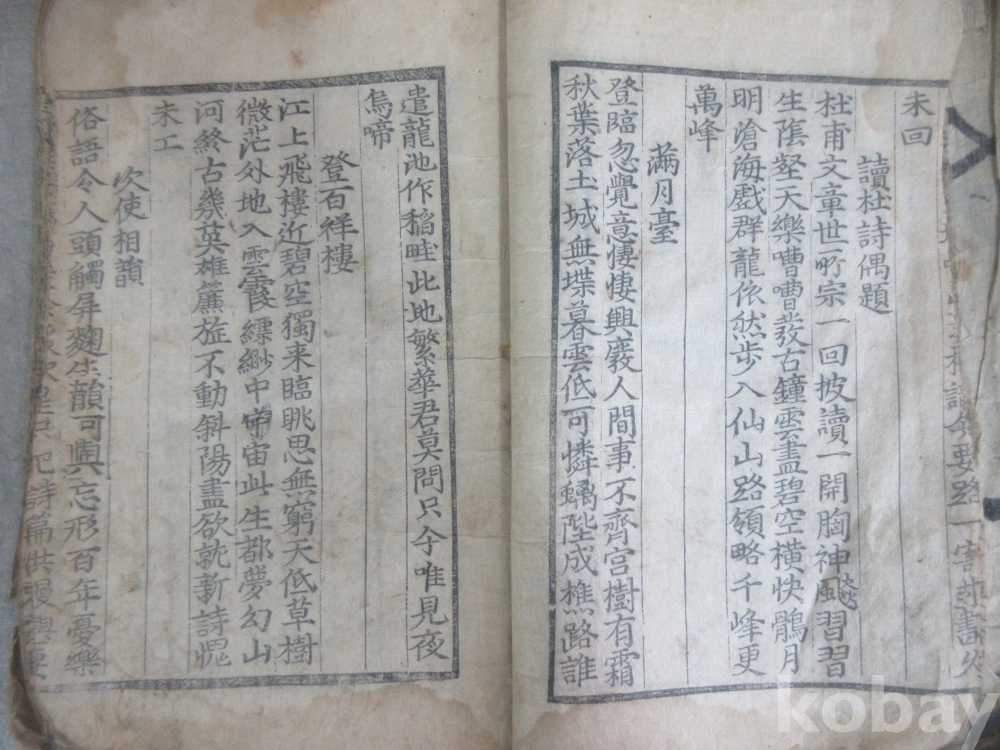 未回
讀杜詩偶題
杜甫文章世所宗一回披讀一開胸神飈習習
生陰壑天樂嘈嘈發古鐘雲盡碧空橫快鶻月
明滄海戲群龍依然步入仙山路領略千峰更
萬峰
滿月臺
登臨忽覺意悽悽興廢人間事不齊宮樹有霜
秋葉落土城無堞暮雲低可憐螭陛成樵路誰
遣龍池作稻畦此地繁華君莫問只今唯見夜
烏啼
登百祥樓
江上飛樓近碧空獨來臨眺思無窮天低草樹
微茫外地入雲霞縹緲中宇宙此生都夢幻山
河終古幾英雄簾旌不動斜陽盡欲就新詩愧
未工
次使相韻
俗語令人頭觸屏麴生韻可與忘形百年憂樂
只把詩篇供
kobay